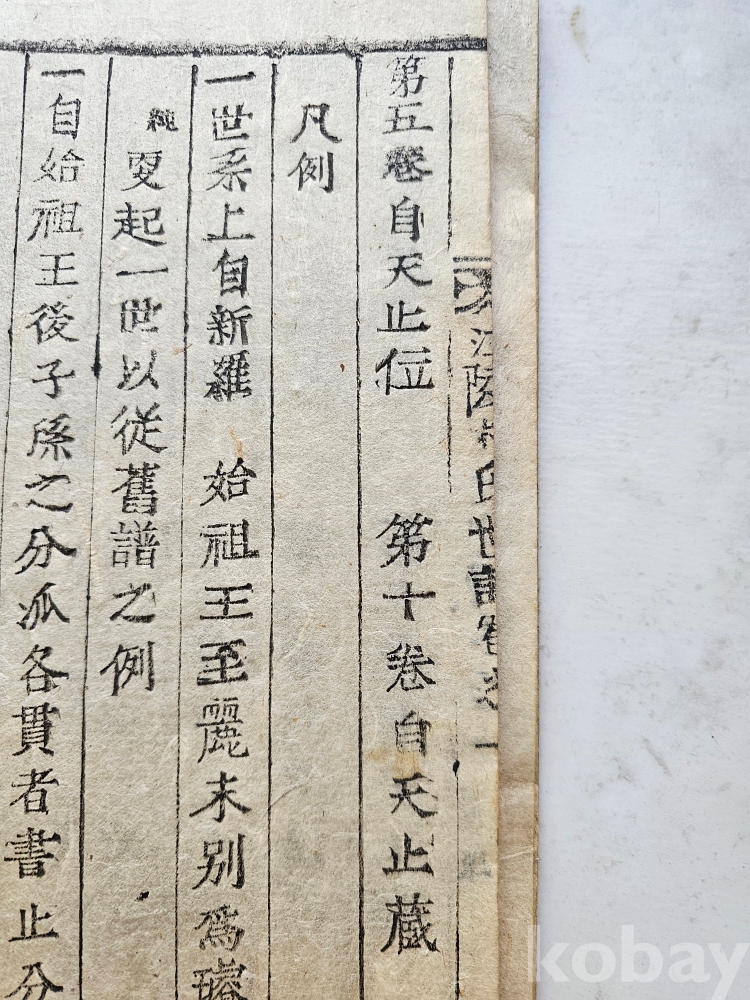 江陵朴氏世譜卷之一
第五卷自天止位　第十卷自天止蔵
凡例
一世系上自新羅　始祖王至麗末別爲璿
純更起一世以從舊譜之例
一自始祖王後子孫之分派各貫者書止分
kobay